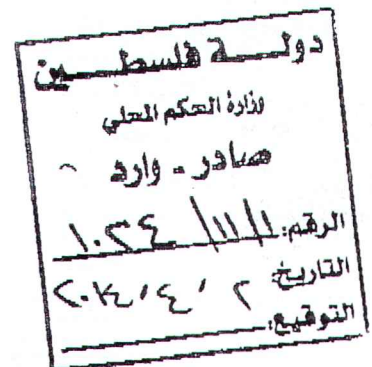 دولة فلسطين
وزارة الحكم المحلي
صادر - وارد
الرقم: ١٠٢٤ /١١/١
التاريخ: ٢ / ٤ / ٢٠٢٤
التوقيع: